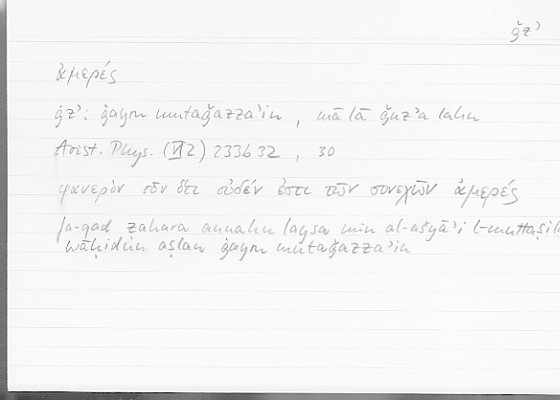 ǧzʾ
ἀμερές
ǧzʾ: ġayru mutaǧazzaʾin, mā lā ǧuzʾa lahu
Arist. Phys. (VI 2) 233b32, 30
φανερὸν οὖν ὅτι οὐδέν ἐστι τῶν συνεχῶν ἀμερές
fa-qad ẓahara annahu laysa min al-ašyāʾi l-muttaṣila
wāḥidun aṣlan ġayru mutaǧazzaʾin